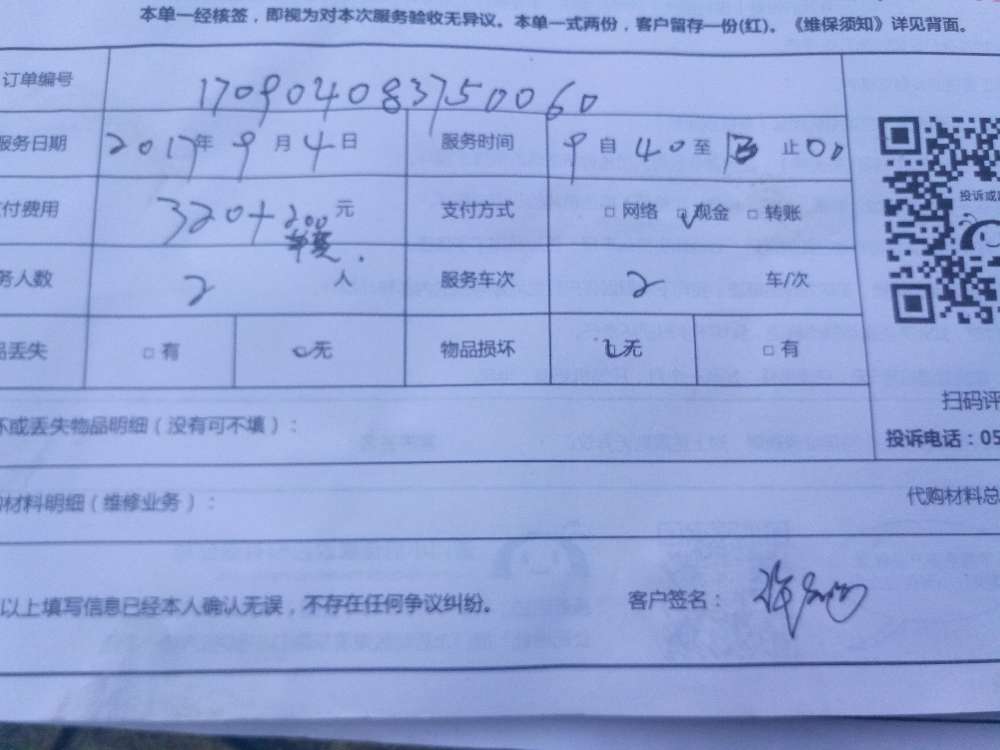 本单一经核签，即视为对本次服务验收无异议。本单一式两份，客户留存一份(红)。《维保须知》详见背面。
订单编号 170904083750060
服务日期 2017年 9 月 4 日 服务时间 9 自 40 至 13 止 00
付费用 320+200 元 支付方式 □ 网络 ☑ 现金 □ 转账
务人数 2 人 服务车次 2 车/次
品丢失 □ 有 ☑ 无 物品损坏 ☑ 无 □ 有
坏或丢失物品明细（没有可不填）：
材料明细（维修业务）：
以上填写信息已经本人确认无误，不存在任何争议纠纷。 客户签名：
投诉或
扫码评
投诉电话：05
代购材料总